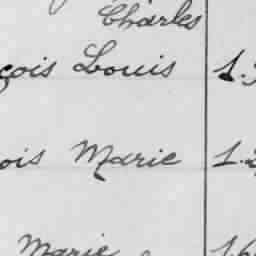 Charles
çois Louis 1.
ois Marie 1.2
Marie 1.6